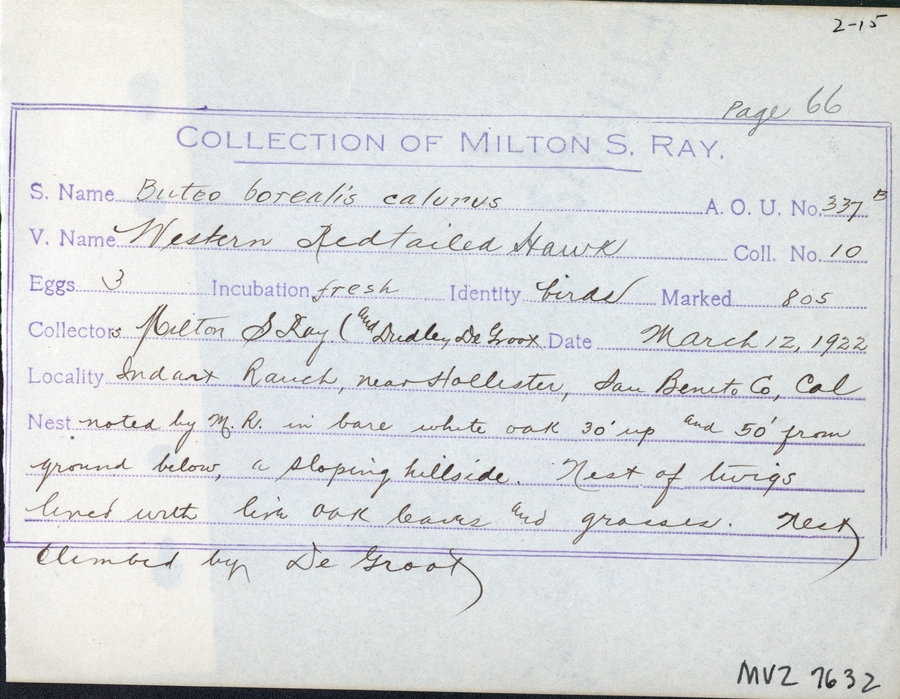 2-15
Page 66
COLLECTION OF MILTON S. RAY.
S. Name Buteo borealis calurus A. O. U. No. 337 B
V. Name Western Redtailed Hawk Coll. No. 10
Eggs 3 Incubation fresh Identity birds Marked 805
Collectors Milton S Ray (and Dudley De Groot Date March 12, 1922
Locality Indart Ranch, near Hollister, San Benito Co, Cal
Nest noted by M. R. in bare white oak 30' up and 50' from
ground below, a sloping hillside. Nest of twigs
lined with live oak leaves and grasses. Nest
climbed by De Groot)
MVZ 7632